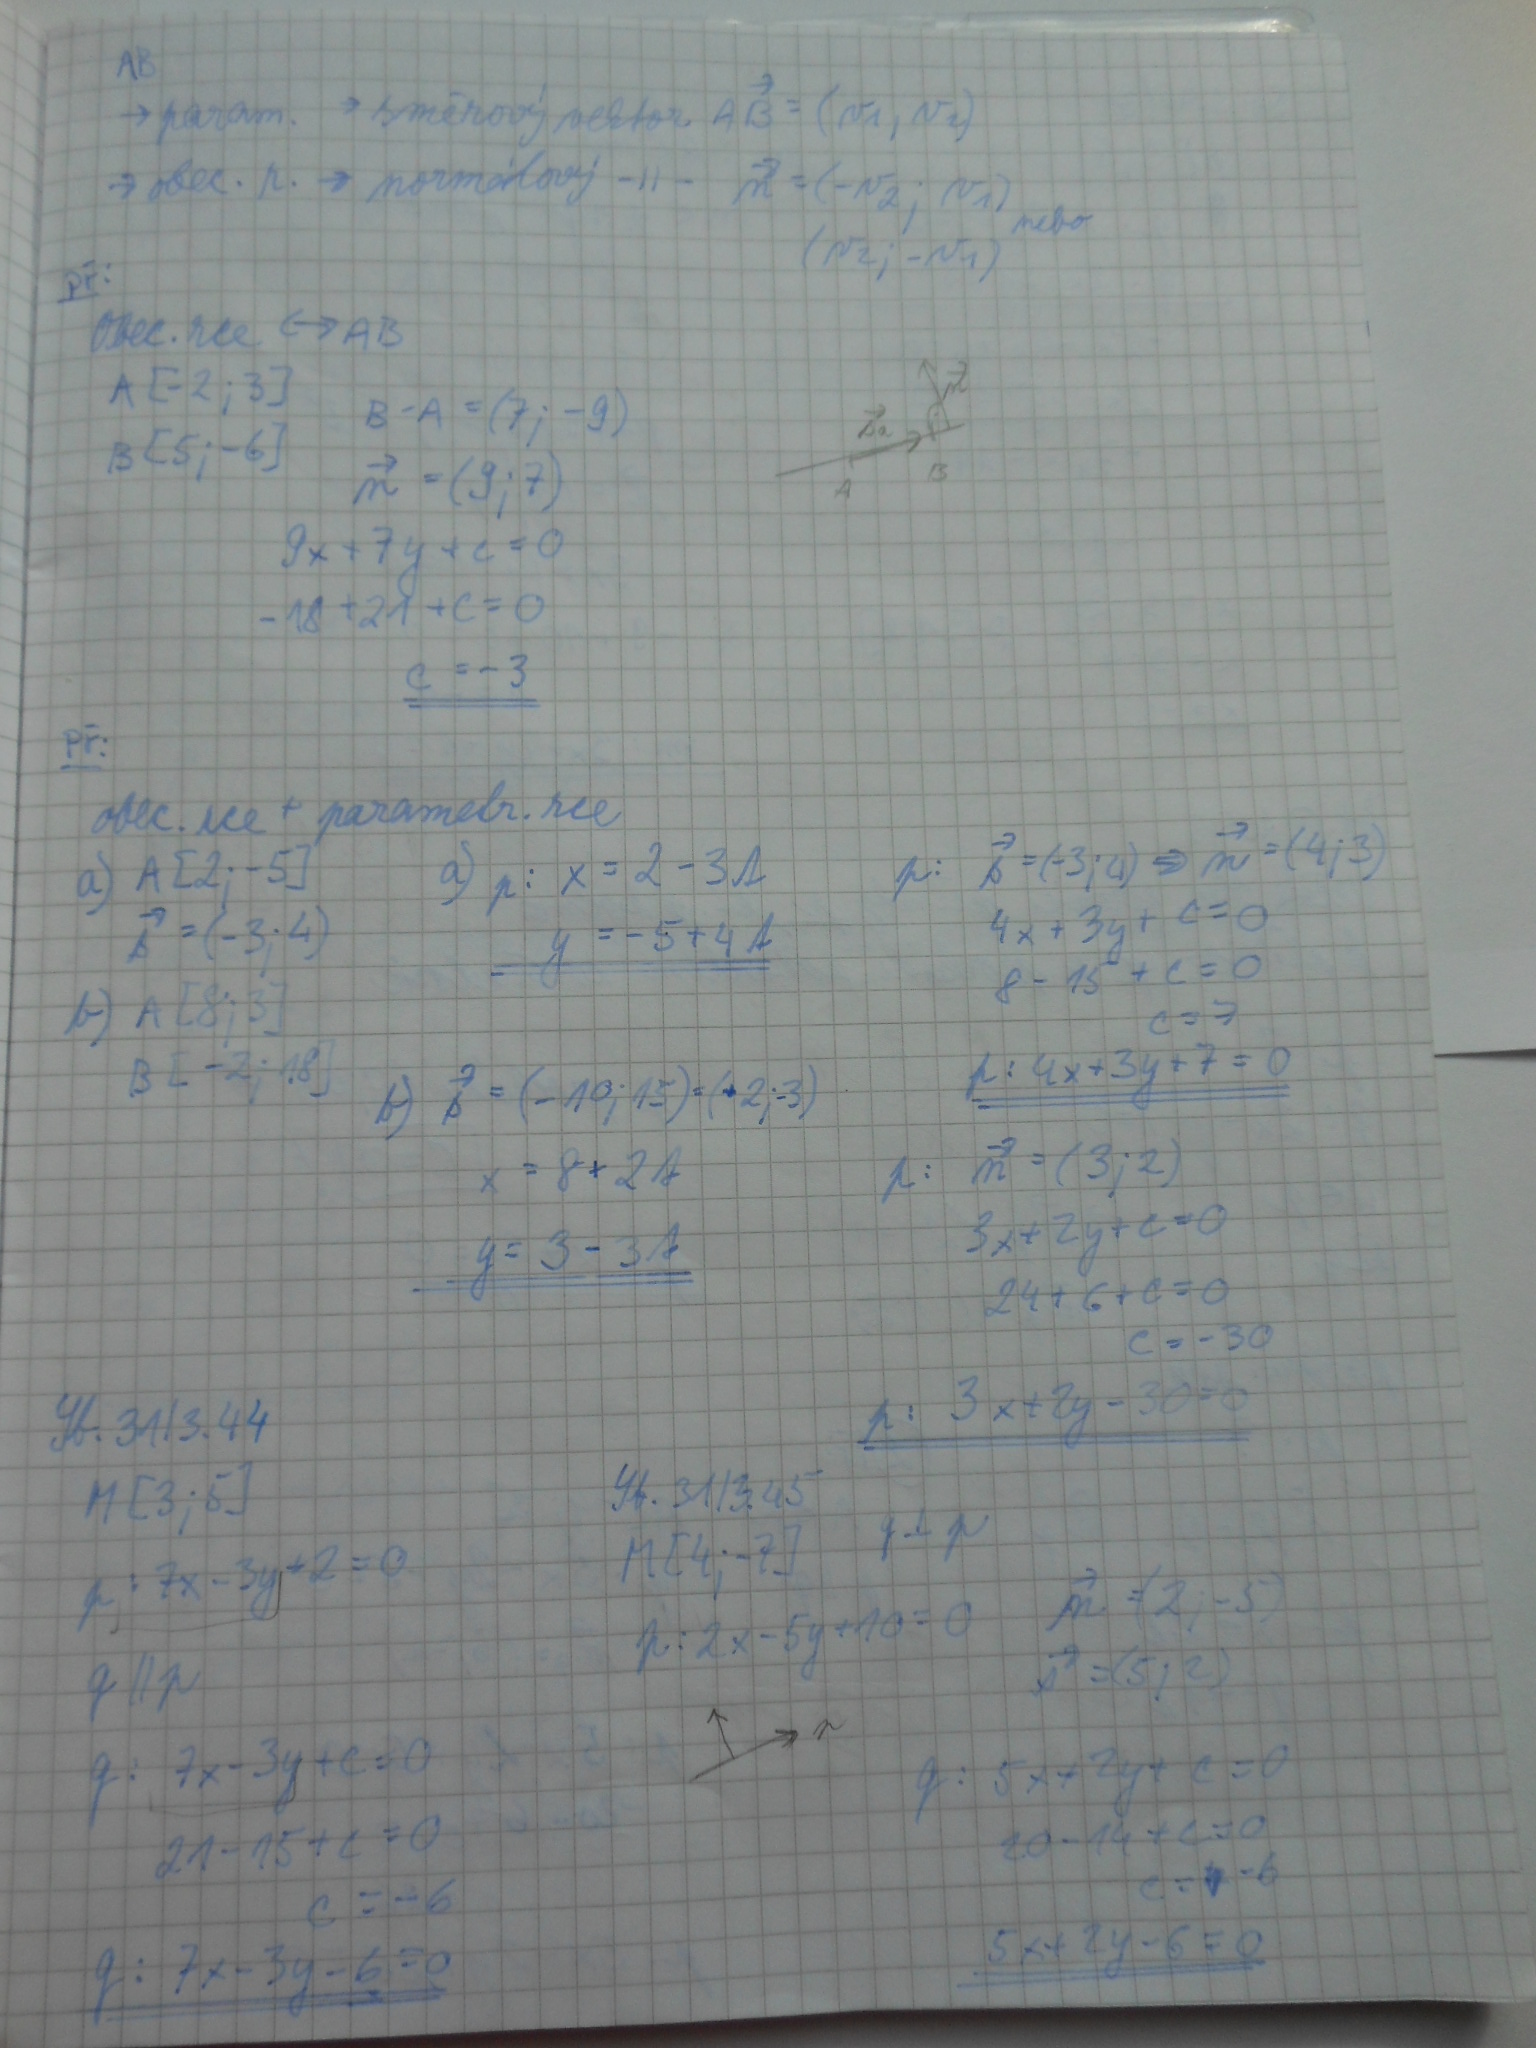 AB
→ param. → směrový vektor AB⃗ = (v1, v2)
→ obec. r. → normálový -11- n⃗ = (-v2; v1) nebo
(v2; -v1)
Př:
Obec. rce ↔ AB
A[-2; 3]
B[5; -6]
B-A = (7; -9)
n⃗ = (9; 7)
9x + 7y + c = 0
-18 + 21 + c = 0
c = -3
n⃗
A
B
Př:
obec. rce + parametr. rce
a) A[2; -5]
s⃗ = (-3; 4)
b) A[8; 3]
B[-2; 18]
a) p: x = 2 - 3t
y = -5 + 4t
p: s⃗ = (-3; 4) ⇒ n⃗ = (4; 3)
4x + 3y + c = 0
8 - 15 + c = 0
c = 7
p: 4x + 3y + 7 = 0
b) s⃗ = (-10; 15) = (2; -3)
x = 8 + 2t
y = 3 - 3t
p: n⃗ = (3; 2)
3x + 2y + c = 0
24 + 6 + c = 0
c = -30
p: 3x + 2y - 30 = 0
31/3.44
M[3; 5]
p: 7x - 3y + 2 = 0
q || p
q: 7x - 3y + c = 0
21 - 15 + c = 0
c = -6
q: 7x - 3y - 6 = 0
31/3.45
M[4; -7]
q ⊥ p
p: 2x - 5y + 10 = 0
n⃗ = (2; -5)
s⃗ = (5; 2)
q: 5x + 2y + c = 0
20 - 14 + c = 0
c = -6
5x + 2y - 6 = 0